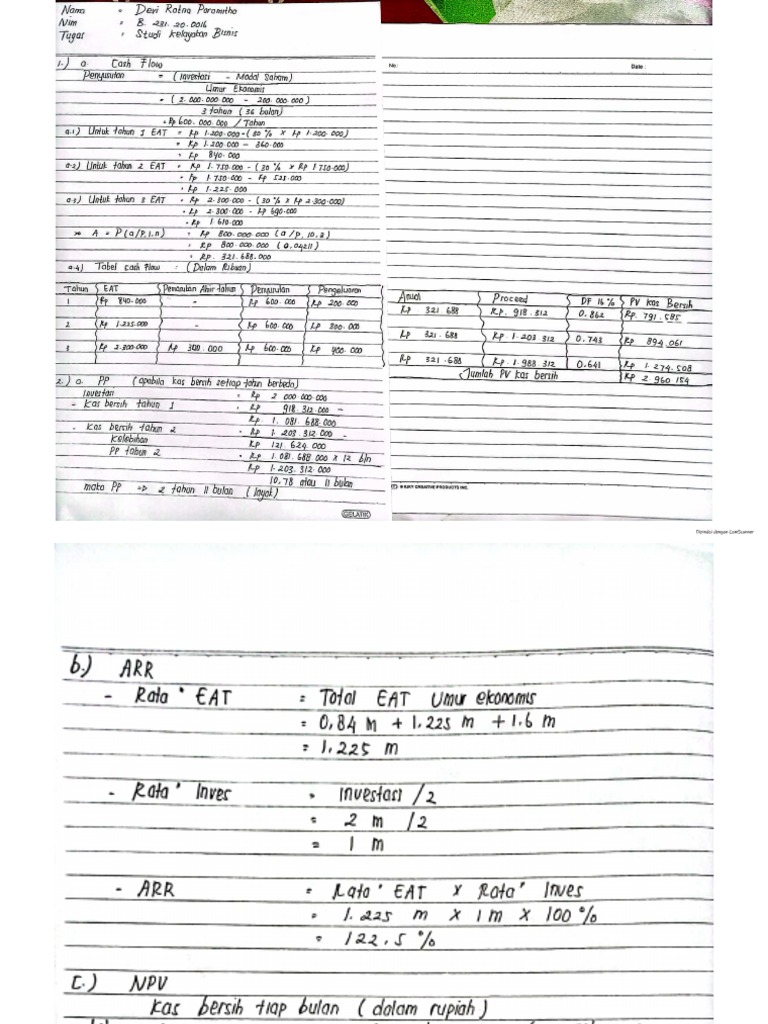 Nama : Dewi Ratna Paramitha
Nim : B. 231. 20. 0016
Tugas : Studi Kelayakan Bisnis
1.) a. Cash Flow
Penyusutan = (Investasi - Modal Saham)
Umur Ekonomis
= (2.000.000.000 - 200.000.000)
3 tahun (36 bulan)
= Rp 600.000.000 / Tahun
a.1) Untuk tahun 1 EAT = Rp 1.200.000 - (30 % x Rp 1.200.000)
= Rp 1.200.000 - 360.000
= Rp 840.000
a.2) Untuk tahun 2 EAT = Rp 1.750.000 - (30 % x Rp 1.750.000)
= Rp 1.750.000 - Rp 525.000
= Rp 1.225.000
a.3) Untuk tahun 3 EAT = Rp 2.300.000 - (30 % x Rp 2.300.000)
= Rp 2.300.000 - Rp 690.000
= Rp 1.610.000
A = P (a/P, i, n) = Rp 800.000.000 (a/P, 10.3)
= Rp 800.000.000 (0.04211)
= Rp. 321.688.000
a.4) Tabel cash Flow : (Dalam Ribuan)
Tahun EAT Penarutan Ahir tahun Penyusutan Pengeluaran
1 Rp 840.000 - Rp 600.000 Rp 200.000
2 Rp 1.225.000 - Rp 600.000 Rp 300.000
3 Rp 2.300.000 Rp 300.000 Rp 600.000 Rp 400.000
2.) a. PP (apabila kas bersih setiap tahun berbeda)
Investasi = Rp 2 000 000 000
- Kas bersih tahun 1 = Rp 918.312.000 -
Rp 1.081.688.000
- Kas bersih tahun 2 = Rp 1.203.312.000 -
Kelebihan Rp 121 624.000
PP tahun 2 = Rp 1.081.688.000 x 12 bln
Rp 1.203.312.000
10,78 atau 11 bulan
maka PP => 2 tahun 11 bulan (layak)
GELATIK
No: Date :
Anual Proceed DF 16 % PV Kas Bersih
Rp 321 688 Rp. 918.312 0.862 Rp. 791.585
Rp 321.688 Rp. 1 203 312 0.743 Rp 894.061
Rp 321.688 Rp. 1.983 312 0.641 Rp 1 274.508
Jumlah PV kas bersih Rp 2 960 154
KIKY CREATIVE PRODUCTS INC.
Dipindai dengan CamScanner
b.) ARR
- Rata" EAT = Total EAT Umur ekonomis
= 0,84 m + 1,225 m + 1.6 m
= 1.225 m
- Rata" Inves = Investasi / 2
= 2 m / 2
= 1 m
- ARR = Rata" EAT x Rata" Inves
= 1.225 m x 1 m x 100 %
= 122.5 %
C.) NPV
Kas bersih tiap bulan (dalam rupiah)